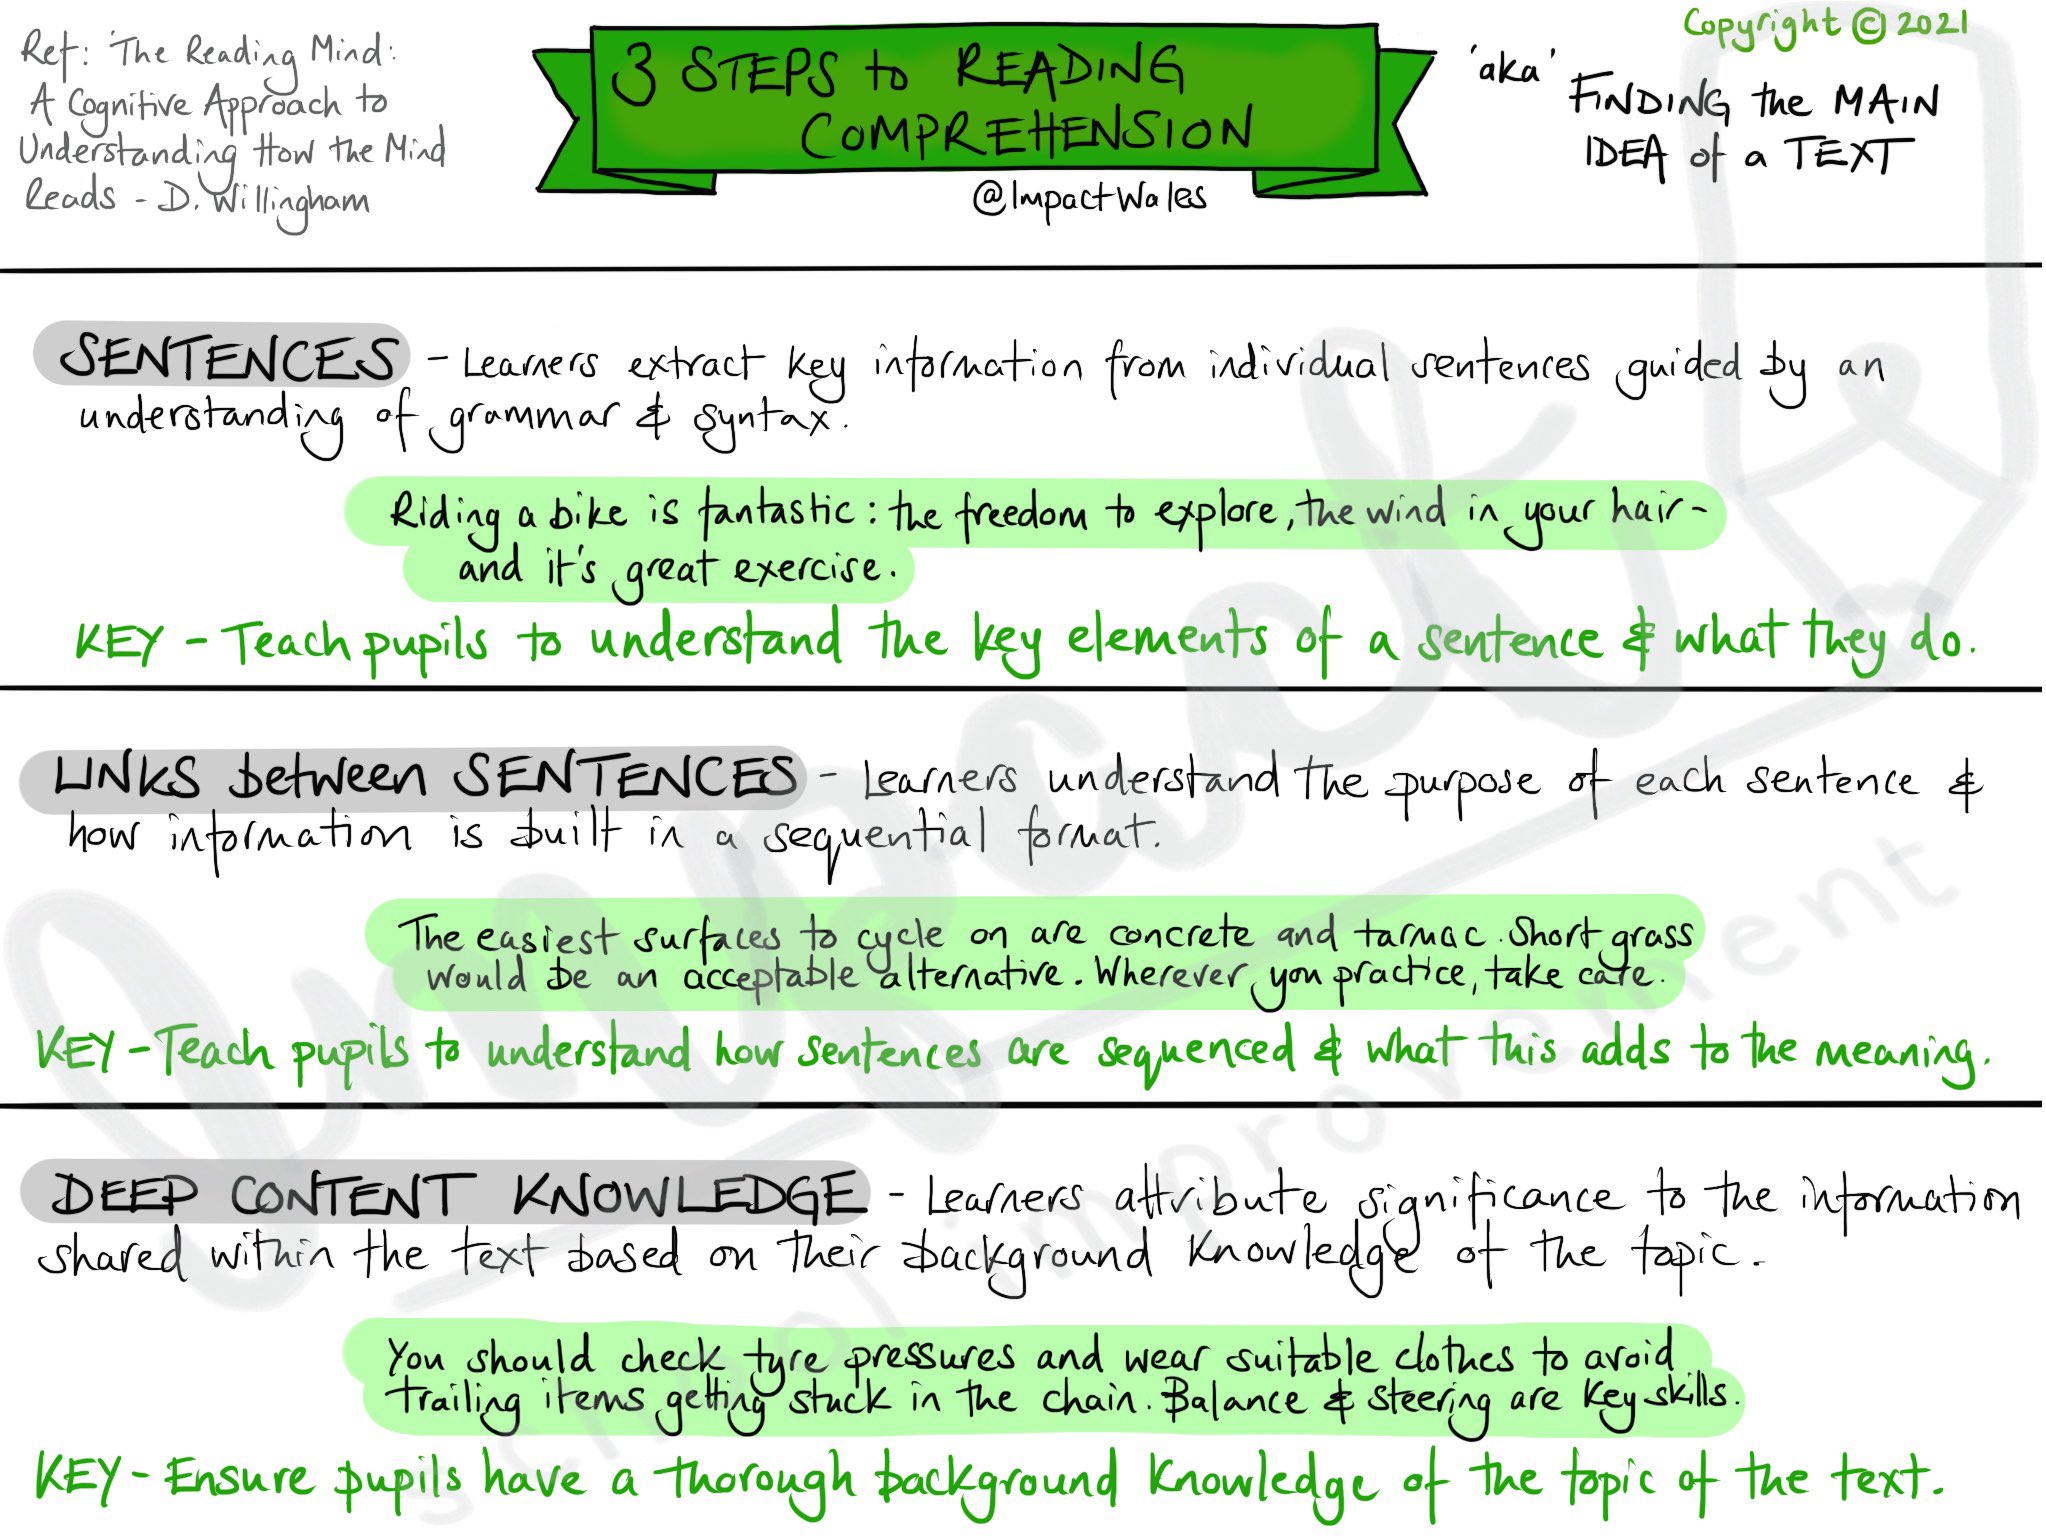 Ref: 'The Reading Mind:
A Cognitive Approach to
Understanding How the Mind
Reads - D. Willingham
3 STEPS to READING
COMPREHENSION
@ImpactWales
'aka'
FINDING the MAIN
IDEA of a TEXT
Copyright © 2021
SENTENCES - Learners extract key information from individual sentences guided by an
understanding of grammar & syntax.
Riding a bike is fantastic: the freedom to explore, the wind in your hair -
and it's great exercise.
KEY - Teach pupils to understand the key elements of a sentence & what they do.
LINKS between SENTENCES - Learners understand the purpose of each sentence &
how information is built in a sequential format.
The easiest surfaces to cycle on are concrete and tarmac. Short grass
would be an acceptable alternative. Wherever you practice, take care.
KEY - Teach pupils to understand how sentences are sequenced & what this adds to the meaning.
DEEP CONTENT KNOWLEDGE - Learners attribute significance to the information
shared within the text based on their background knowledge of the topic.
You should check tyre pressures and wear suitable clothes to avoid
trailing items getting stuck in the chain. Balance & steering are key skills.
KEY - Ensure pupils have a thorough background knowledge of the topic of the text.
Impact
school improvement